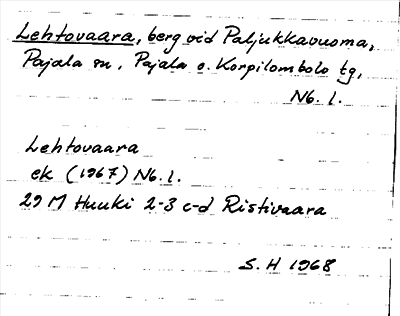 Lehtovaara, berg vid Paljukkavuoma,
Pajala sn, Pajala o. Korpilombolo tg,
Nb. l.
Lehtovaara
ek (1967) Nb. l.
29 M Huuki 2-3 c-d Ristivaara
S. H 1968